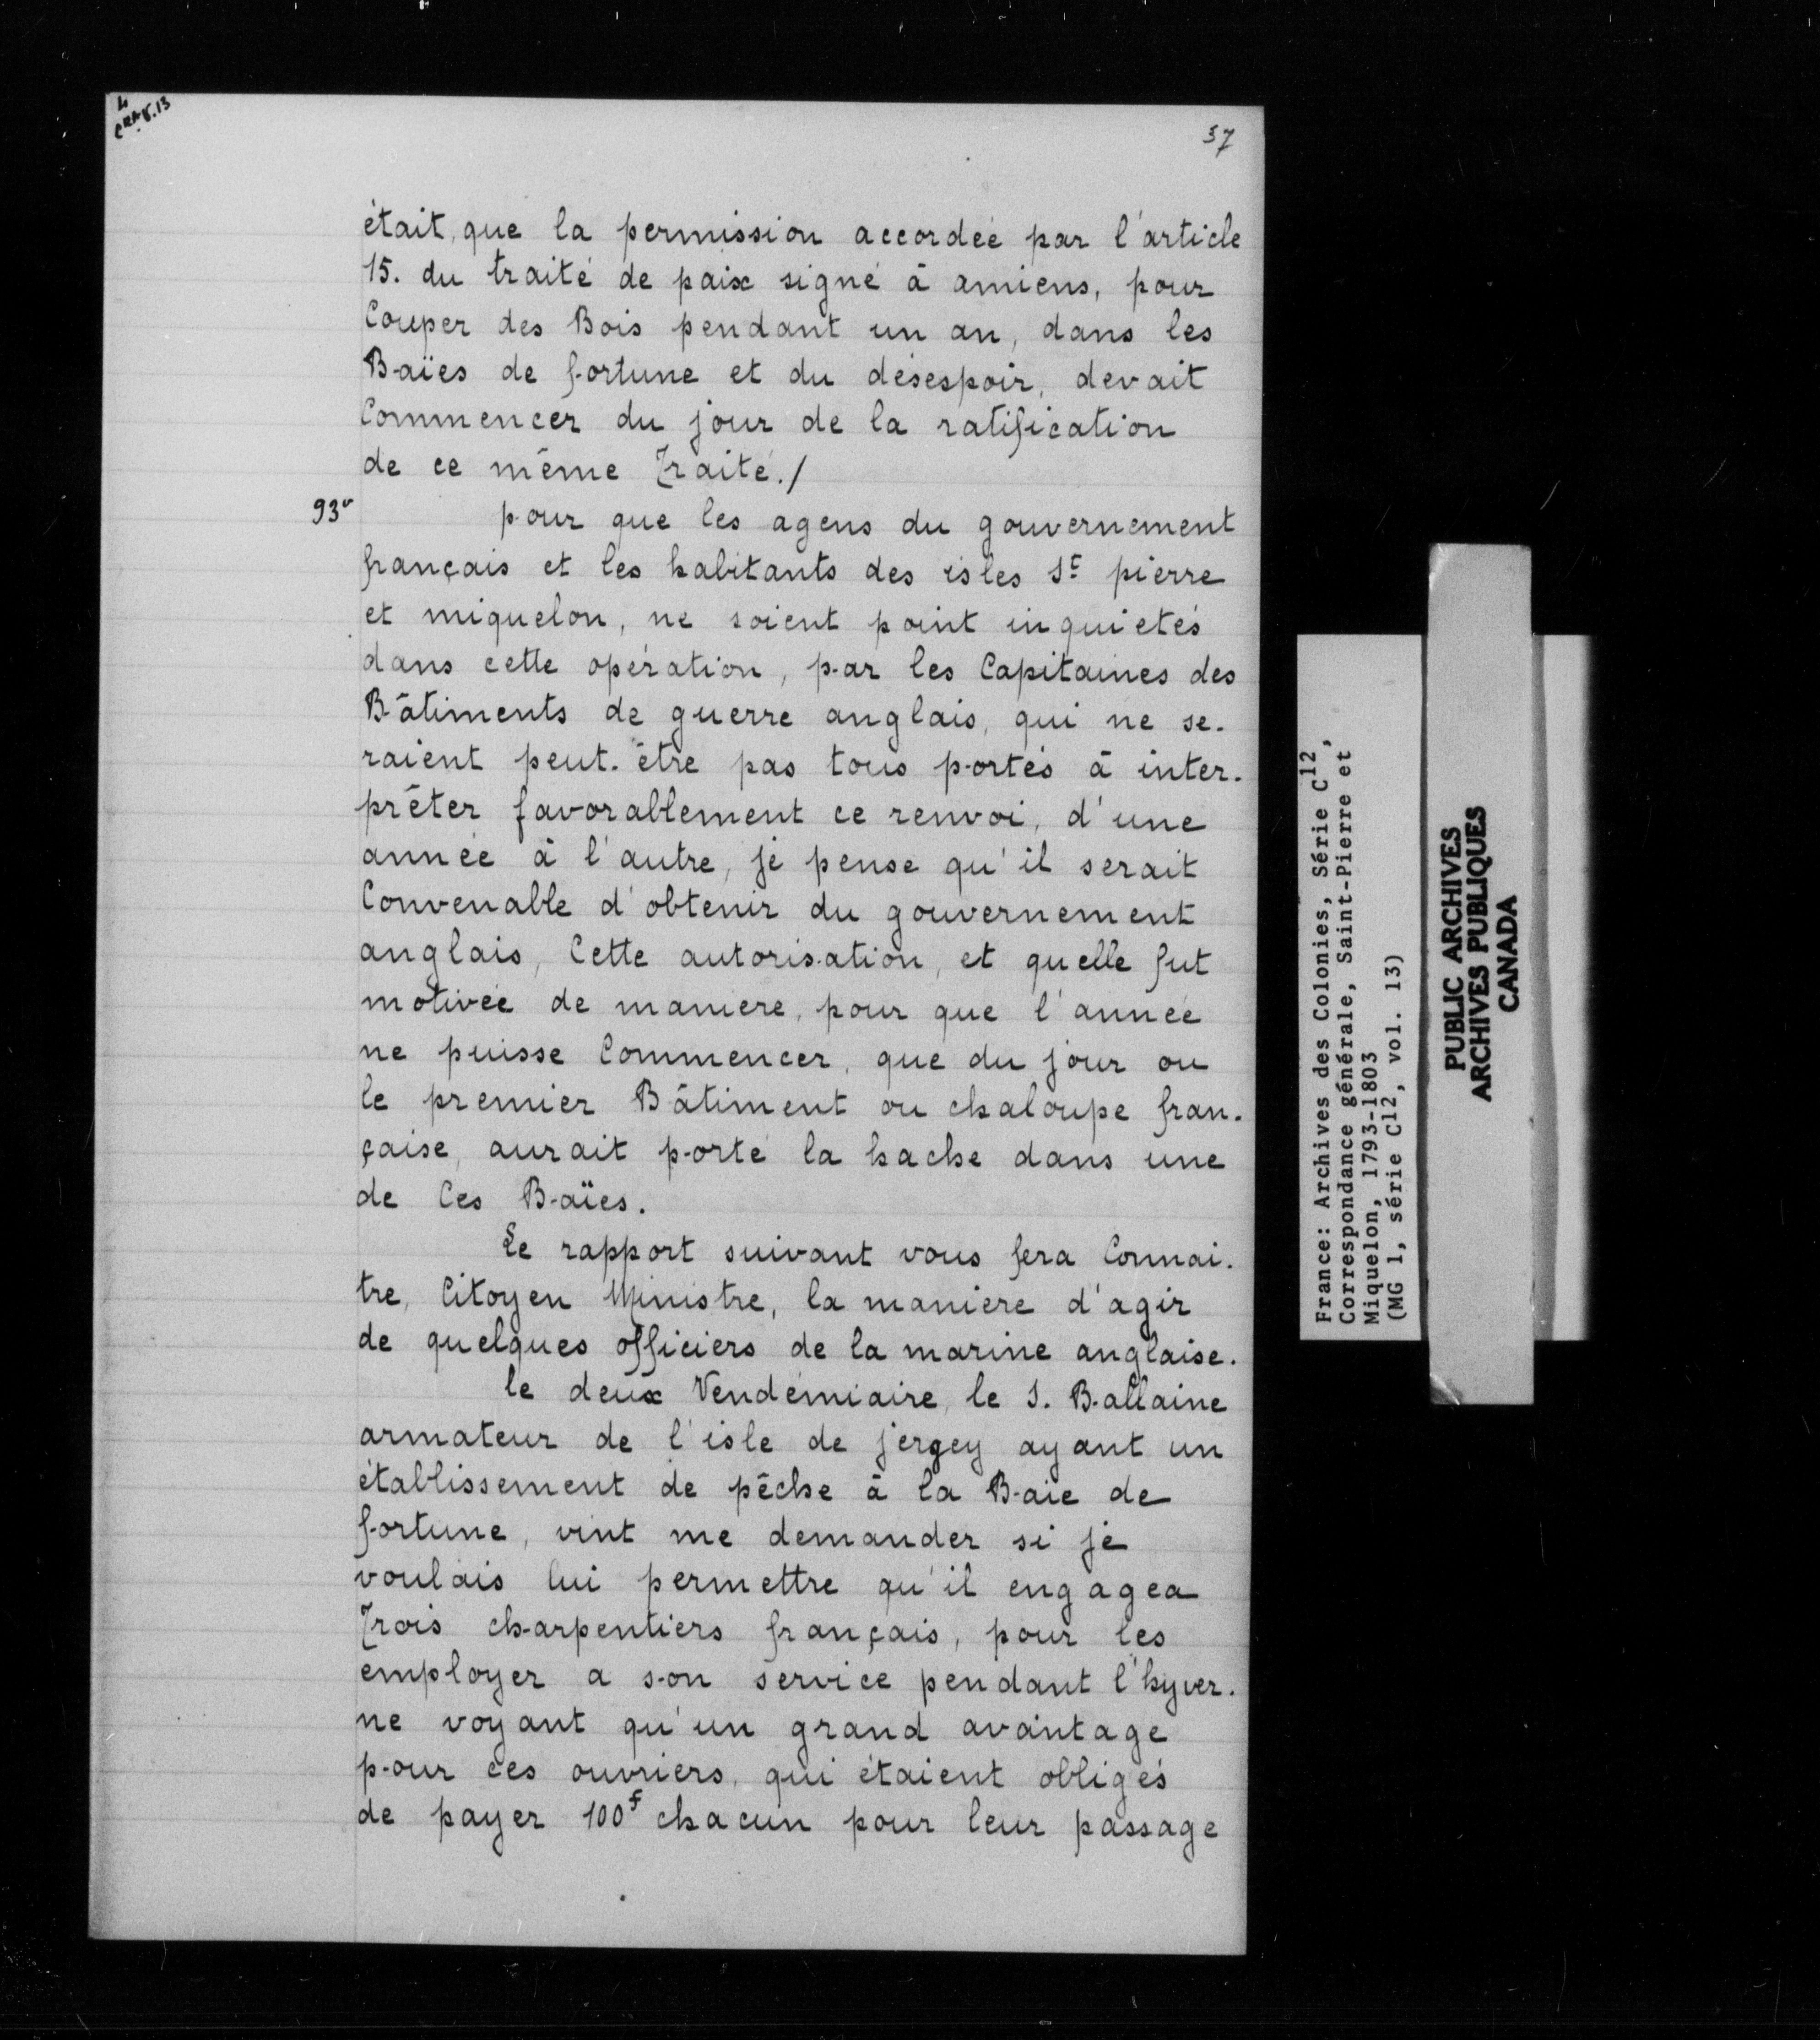 37
était, que la permission accordée par l'article
15. du traité de paix signé à amiens, pour
Couper des Bois pendant un an, dans les
Baïes de fortune et du désespoir, devait
Commencer du jour de la ratification
de ce même Traité./
93v
pour que les agens du gouvernement
français et les habitants des isles St pierre
et miquelon, ne soient point inquiétés
dans cette opération, par les Capitaines des
Bâtiments de guerre anglais, qui ne se-
raient peut-être pas tous portés à inter-
prêter favorablement ce renvoi, d'une
année à l'autre, je pense qu'il serait
Convenable d'obtenir du gouvernement
anglais, Cette autorisation, et quelle fut
motivée de manière, pour que l'année
ne puisse Commencer, que du jour ou
le premier Bâtiment ou chaloupe fran-
çaise, aurait porté la hache dans une
de Ces Baïes.
Le rapport suivant vous fera Connai-
tre, Citoyen Ministre, la manière d'agir
de quelques officiers de la marine anglaise.
le deux Vendémiaire, le S. Ballaine
armateur de l'isle de jergey ayant un
établissement de pêche à la Baie de
fortune, vint me demander si je
voulais lui permettre qu'il engagea
Trois charpentiers français, pour les
employer a son service pendant l'hyver.
ne voyant qu'un grand avantage
pour ces ouvriers, qui étaient obligés
de payer 100f chacun pour leur passage
France: Archives des Colonies, Série C12,
Correspondance générale, Saint-Pierre et
Miquelon, 1793-1803
(MG 1, série C12, vol. 13)
PUBLIC ARCHIVES
ARCHIVES PUBLIQUES
CANADA